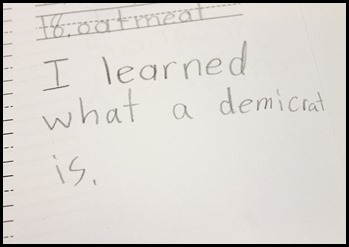 18. oatmeal
I learned
what a demicrat
is.